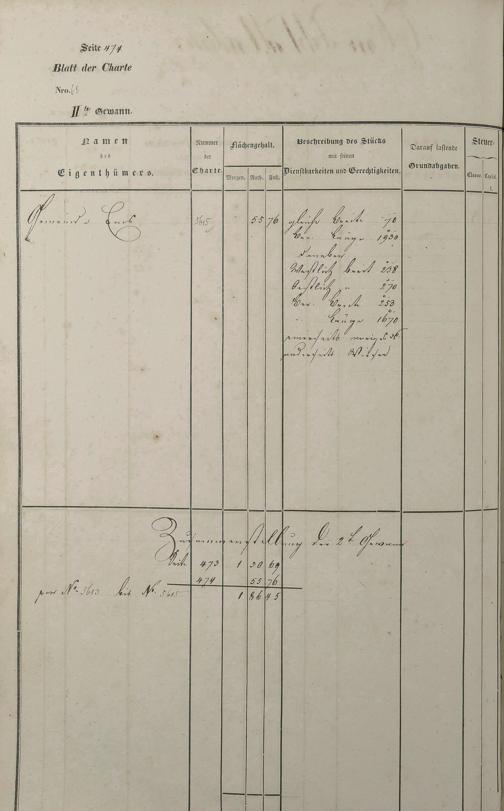 Seite 474
Blatt der Charte
Nro. 65
II te Gewann.
Namen
des
Eigenthümers.
Nummer
der
Charte.
Flächengehalt.
Morgen. Ruth. Fuß.
Beschreibung des Stücks
mit seinen
Dienstbarkeiten und Gerechtigkeiten.
Darauf lastende
Grundabgaben.
Steuer-
Classe. Capital.
Gemeinde 5615 55 76 gleiche Breite 70
Länge 1930
Daneben
Westlich breit 238
Oestlich " 270
Breite 253
Länge 1670
einerseits
anderseits
Zusammenstellung der 2t Gewann
Seite 473 1 30 69
474 55 76
1 86 45
No. 5613 bis No. 5615